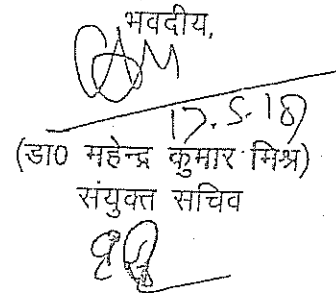 भवदीय,
17.5.18
(डा0 महेन्द्र कुमार मिश्र)
संयुक्त सचिव